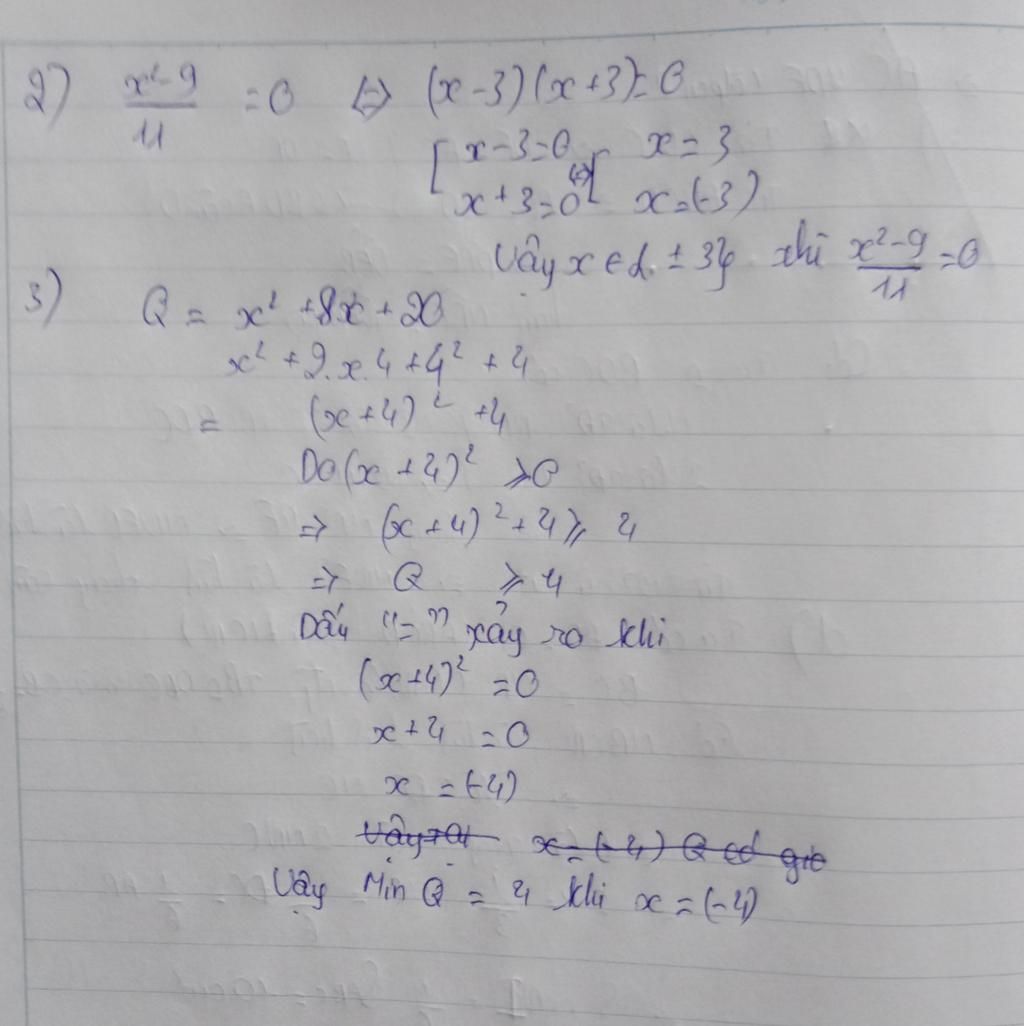 2) x²-9/11 = 0 <=> (x-3)(x+3)=0
[ x-3=0 <=> [ x = 3
x+3=0 x=(-3)
Vậy x ∈ {±3} khi x²-9/11 =0
3) Q = x² +8x+20
x² + 2.x.4+4² + 4
= (x+4)² +4
Do(x+4)² ⩾0
=> (x+4)²+4⩾ 4
=> Q ⩾ 4
Dấu "=" xảy ra khi
(x+4)² =0
x+4 =0
x =(-4)
x=(-4) Q có giá
Vậy Min Q = 4 khi x =(-4)